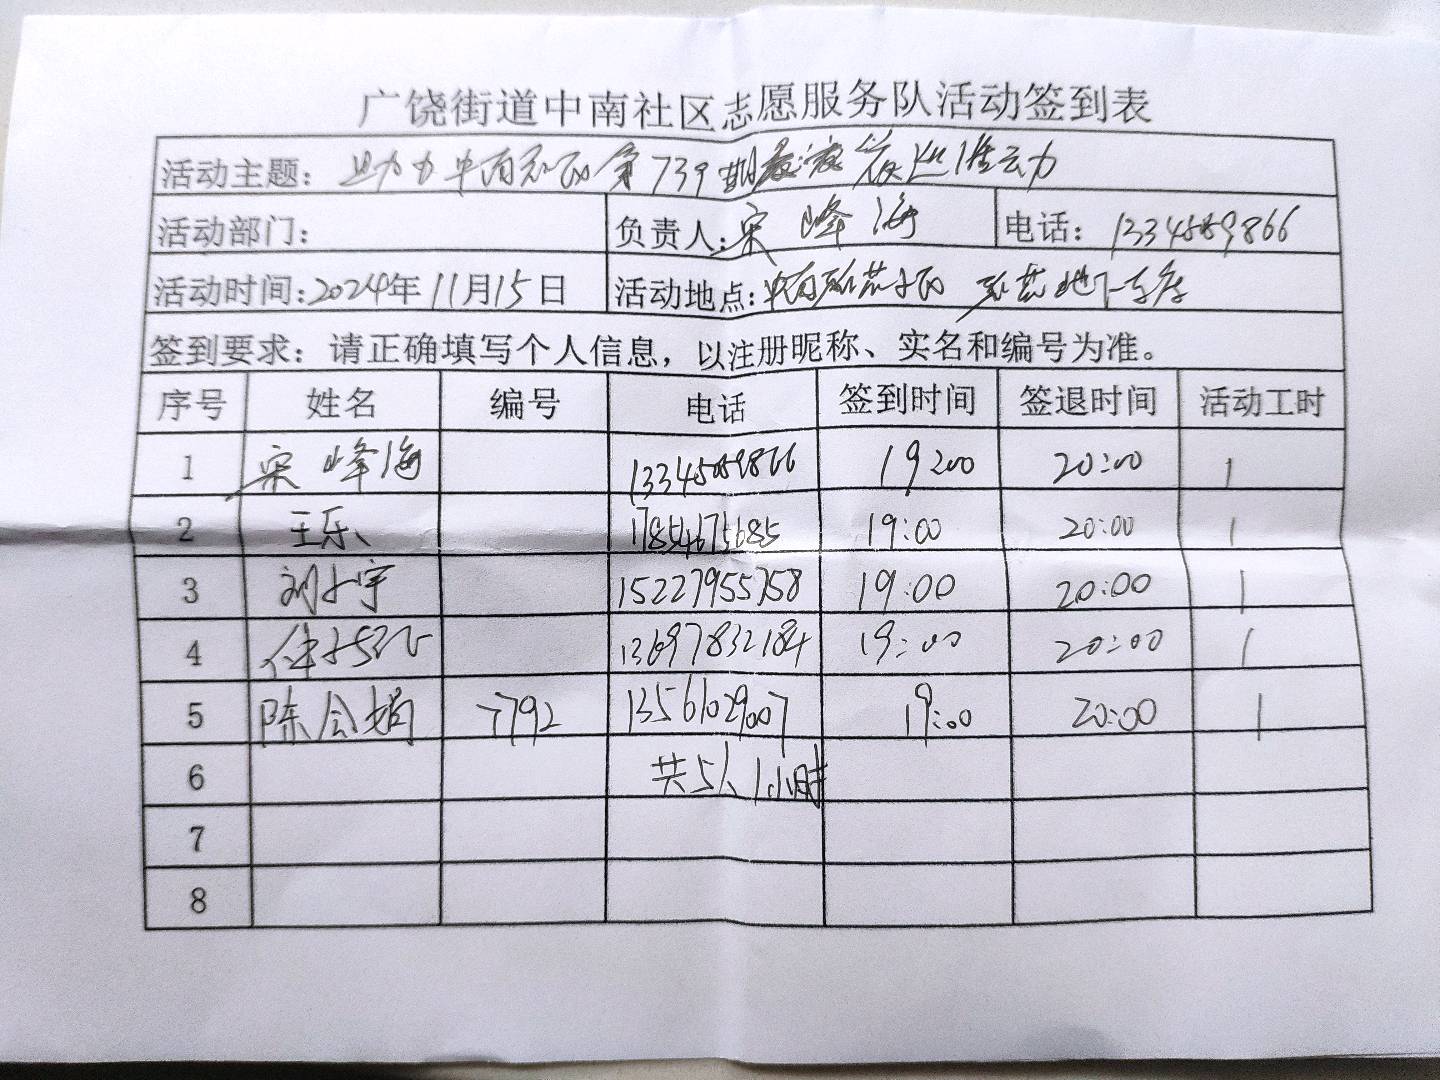 广饶街道中南社区志愿服务队活动签到表
活动主题：助力中南 第739期 运动
活动部门： 负责人：宋峰海 电话：13345089866
活动时间：2024年11月15日 活动地点：中南 地下车库
签到要求：请正确填写个人信息，以注册昵称、实名和编号为准。
序号 姓名 编号 电话 签到时间 签退时间 活动工时
1 宋峰海 13345089866 19:00 20:00 1
2 王乐 17854675685 19:00 20:00 1
3 刘 宇 15227955758 19:00 20:00 1
4 13697832184 19:00 20:00 1
5 陈会娟 7792 13561029007 19:00 20:00 1
6 共5人 1小时
7
8